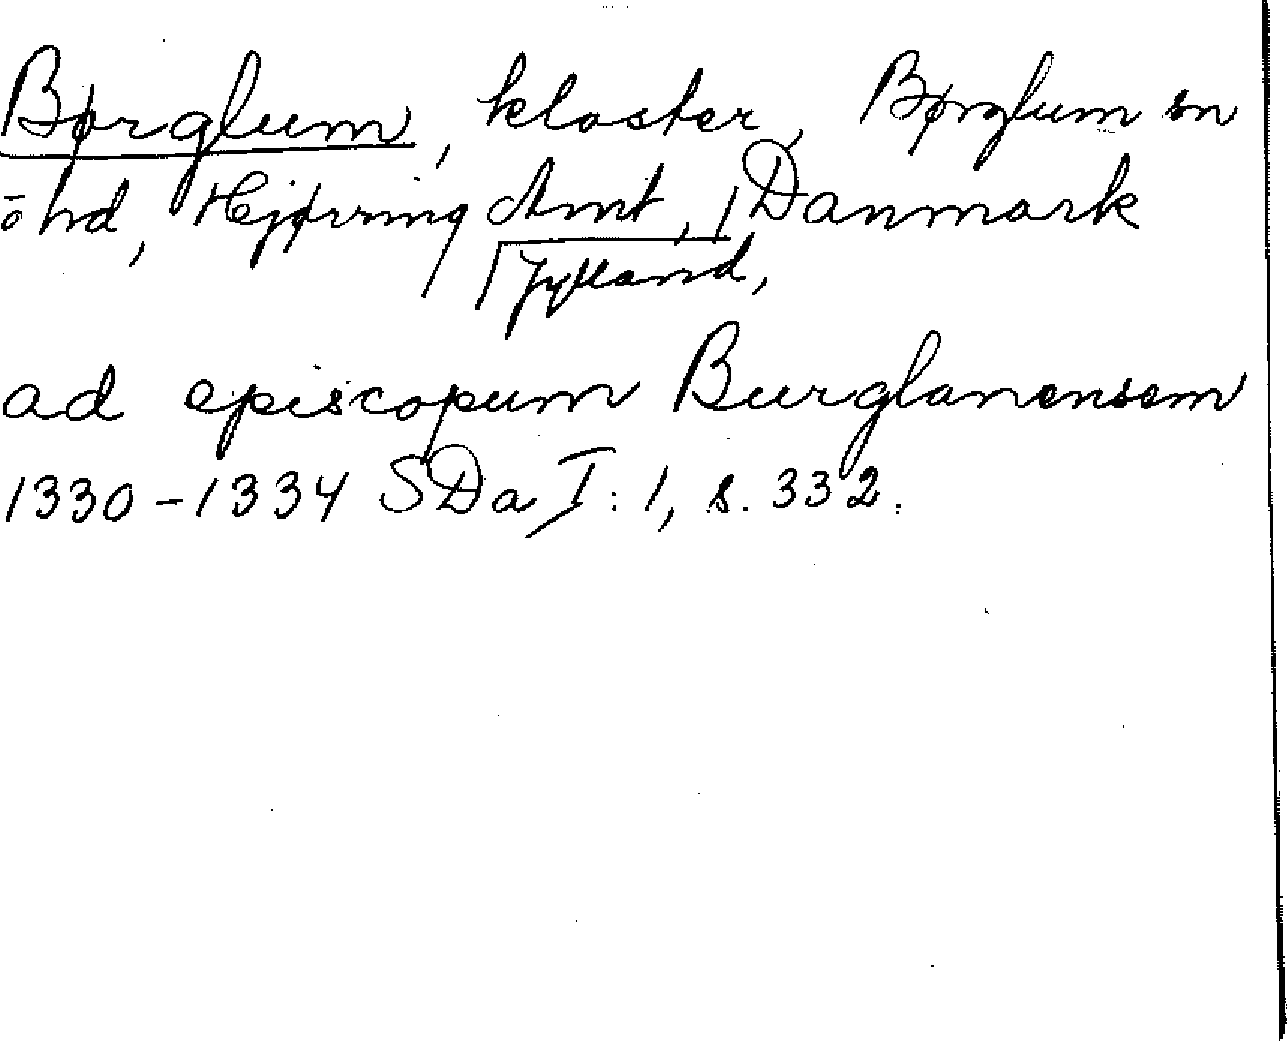 Børglum, kloster, Børglum sn
ö hd, Hjørring Amt, Danmark
Jylland,
ad episcopum Burglanensem
1330-1334 SDa I:1, s. 332.